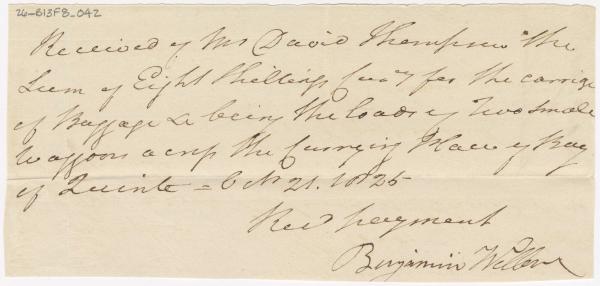 26-B13F8-042
Received of Mr David Thompson the
Sum of Eight Shillings Cur'y for the carriage
of Baggage &c being the loads of Two small
Waggons across the Carrying Place of Bay
of Quinte - Octr 21. 1825
Recd payment
Benjamin